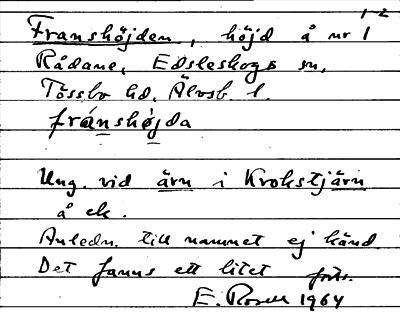 1-2
Franshöjden, höjd å nr 1
Rådane, Edsleskogs sn,
Tössbo hd, Älvsb. l.
fránshö̀jda
Ung. vid ärn i Krokstjärn
å ek.
Anledn. till namnet ej känd.
Det fanns ett litet forts.
E. Rosell 1964